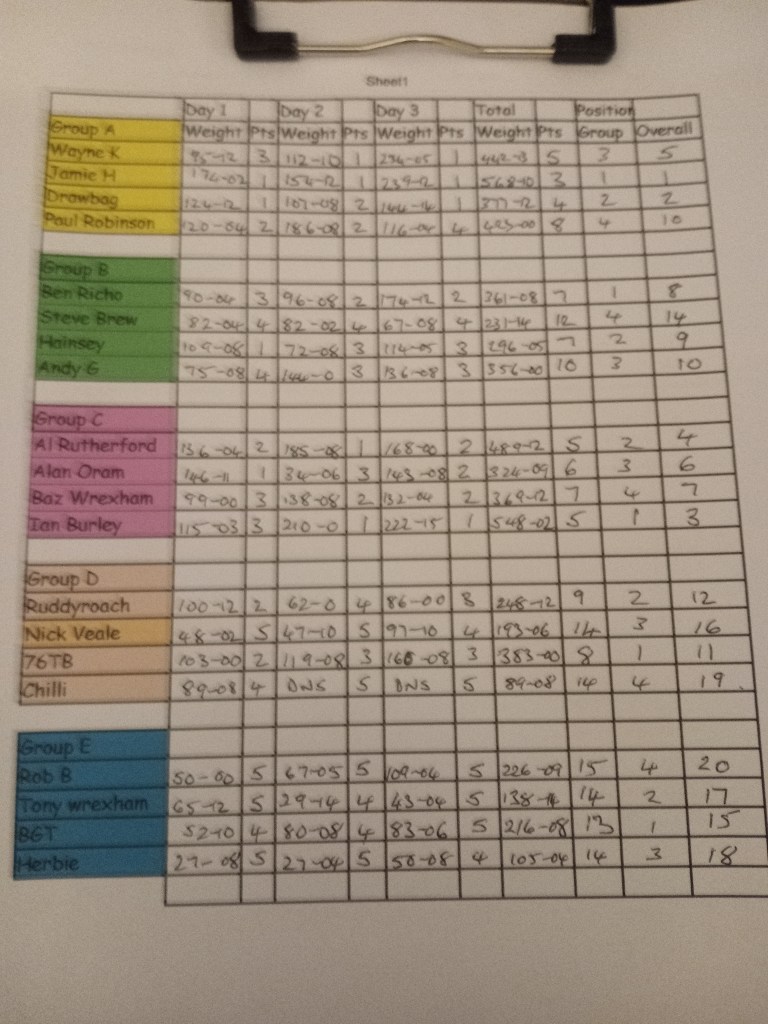 Sheet1
Day 1 Day 2 Day 3 Total Position
Group A Weight Pts Weight Pts Weight Pts Weight Pts Group Overall
Wayne K 95-12 3 112-10 1 234-05 1 5 3 5
Jamie H 174-02 1 154-12 1 239-12 1 568-10 3 1 1
Drawbag 124-12 1 107-08 2 1 377-12 4 2 2
Paul Robinson 120-04 2 186-08 2 116-04 4 423-00 8 4 10
Group B
Ben Richo 90-04 3 96-08 2 174-12 2 361-08 7 1 8
Steve Brew 82-04 4 82-02 4 67-08 4 231-14 12 4 14
Hainsey 109-08 1 72-08 3 114-05 3 296-05 7 2 9
Andy G 75-08 4 144-0 3 136-08 3 356-00 10 3 10
Group C
Al Rutherford 136-04 2 185-08 1 168-00 2 489-12 5 2 4
Alan Oram 146-11 1 34-06 3 143-08 2 324-09 6 3 6
Baz Wrexham 99-00 3 138-08 2 132-04 2 369-12 7 4 7
Ian Burley 115-03 3 210-0 1 222-15 1 548-02 5 1 3
Group D
Ruddyroach 100-12 2 62-0 4 86-00 3 248-12 9 2 12
Nick Veale 48-02 5 47-10 5 97-10 4 193-06 14 3 16
76TB 103-00 2 119-08 3 160-08 3 383-00 8 1 11
Chilli 89-08 4 DNS 5 DNS 5 89-08 14 4 19
Group E
Rob B 50-00 5 67-05 5 109-04 5 226-09 15 4 20
Tony wrexham 65-12 5 29-14 4 43-04 5 14 2 17
BGT 52-10 4 80-08 4 83-06 5 216-08 13 1 15
Herbie 27-08 5 27-04 5 50-08 4 105-04 14 3 18